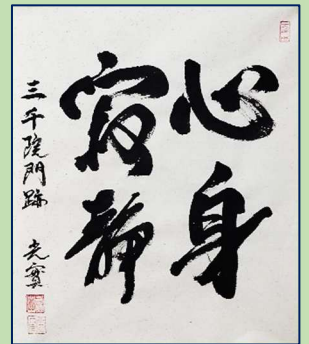 心身
寂静
三千院門跡 光實